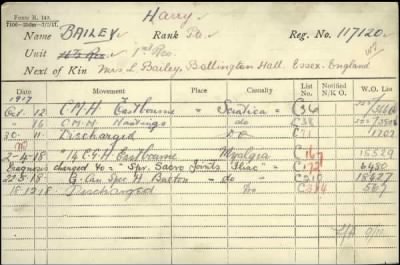 Form R. 149.
Harry.
Name BAILEY. Rank Pte. Reg. No. 117120.
Unit 1st Res.
Next of Kin Mrs. L. Bailey, Ballington Hall. Essex. England
Date Movement Place Casualty List No. Notified N/K O. W.O. List
1917
Oct. 12 C.M.H. Eastbourne " Sciatica C 26
" 16 C.M.H. Hastings do C 38
30. 11. Discharged C 71 1707
2-4-18 14 C.G.H. Eastbourne Myalgia C 167 15529
Diagnosis changed to "Spr. Sacro Joints Iliac" C 172 6480
22-5-18 G. Can Spec H. Buxton do C 210 15627
18-12-18 Discharged C 384 567